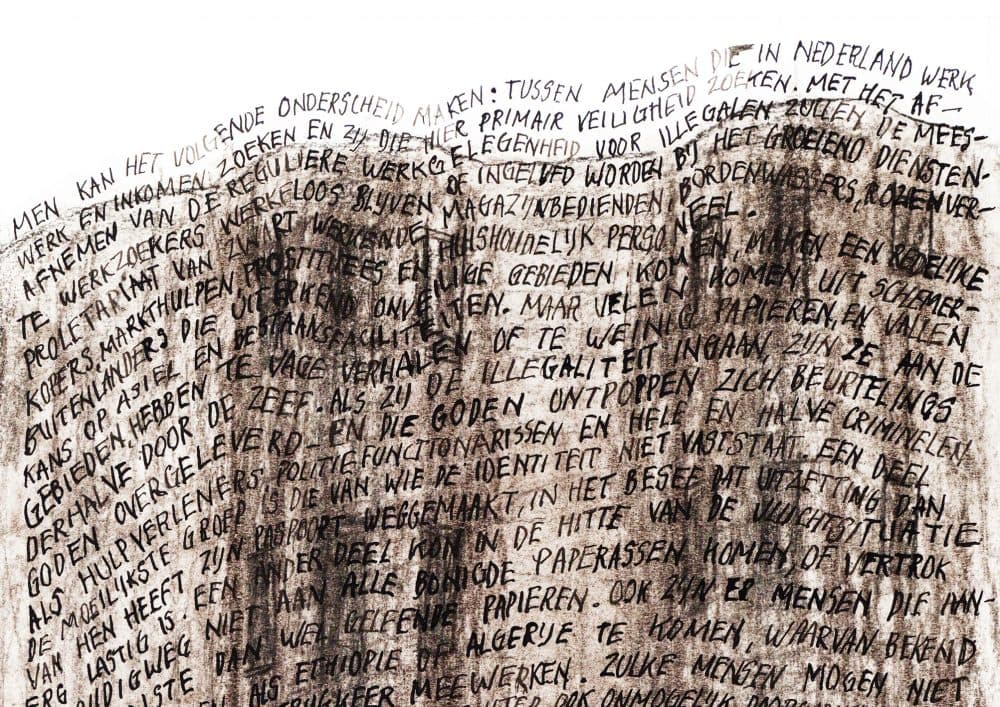 MEN KAN HET VOLGENDE ONDERSCHEID MAKEN: TUSSEN MENSEN DIE IN NEDERLAND WERK
WERK EN INKOMEN ZOEKEN EN ZIJ DIE HIER PRIMAIR VEILIGHEID ZOEKEN. MET HET AF-
AFNEMEN VAN DE REGULIERE WERKGELEGENHEID VOOR ILLEGALEN ZULLEN DE MEES-
TE WERKZOEKERS WERKELOOS BLIJVEN OF INGELIJFD WORDEN BIJ HET GROEIEND DIENSTEN-
PROLETARIAAT VAN ZWART WERKENDE MAGAZIJNBEDIENDEN, BORDENWASSERS, ROZENVER-
KOPERS, MARKTHULPEN, PROSTITUEES EN HUISHOUDELIJK PERSONEEL.
BUITENLANDERS DIE UIT ERKEND ONVEILIGE GEBIEDEN KOMEN, MAKEN EEN REDELIJKE
KANS OP ASIEL EN BESTAANSFACILITEITEN. MAAR VELEN KOMEN UIT SCHEMER-
GEBIEDEN, HEBBEN TE VAGE VERHALEN OF TE WEINIG PAPIEREN, EN VALLEN
DERHALVE DOOR DE ZEEF. ALS ZIJ DE ILLEGALITEIT INGAAN, ZIJN ZE AAN DE
GODEN OVERGELEVERD - EN DIE GODEN ONTPOPPEN ZICH BEURTELINGS
ALS HULPVERLENERS, POLITIEFUNCTIONARISSEN EN HELE EN HALVE CRIMINELEN.
DE MOEILIJKSTE GROEP IS DIE VAN WIE DE IDENTITEIT NIET VASTSTAAT. EEN DEEL
VAN HEN HEEFT ZIJN PASPOORT WEGGEMAAKT, IN HET BESEF DAT UITZETTING DAN
ERG LASTIG IS. EEN ANDER DEEL KON IN DE HITTE VAN DE VLUCHTSITUATIE
NIET AAN ALLE BONIGDE PAPERASSEN KOMEN, OF VERTROK
DAN WEL GELEENDE PAPIEREN. OOK ZIJN ER MENSEN DIE AAN-
ALS ETHIOPIE OF ALGERIJE TE KOMEN, WAARVAN BEKEND
MEEWERKEN. ZULKE MENSEN MOGEN NIET